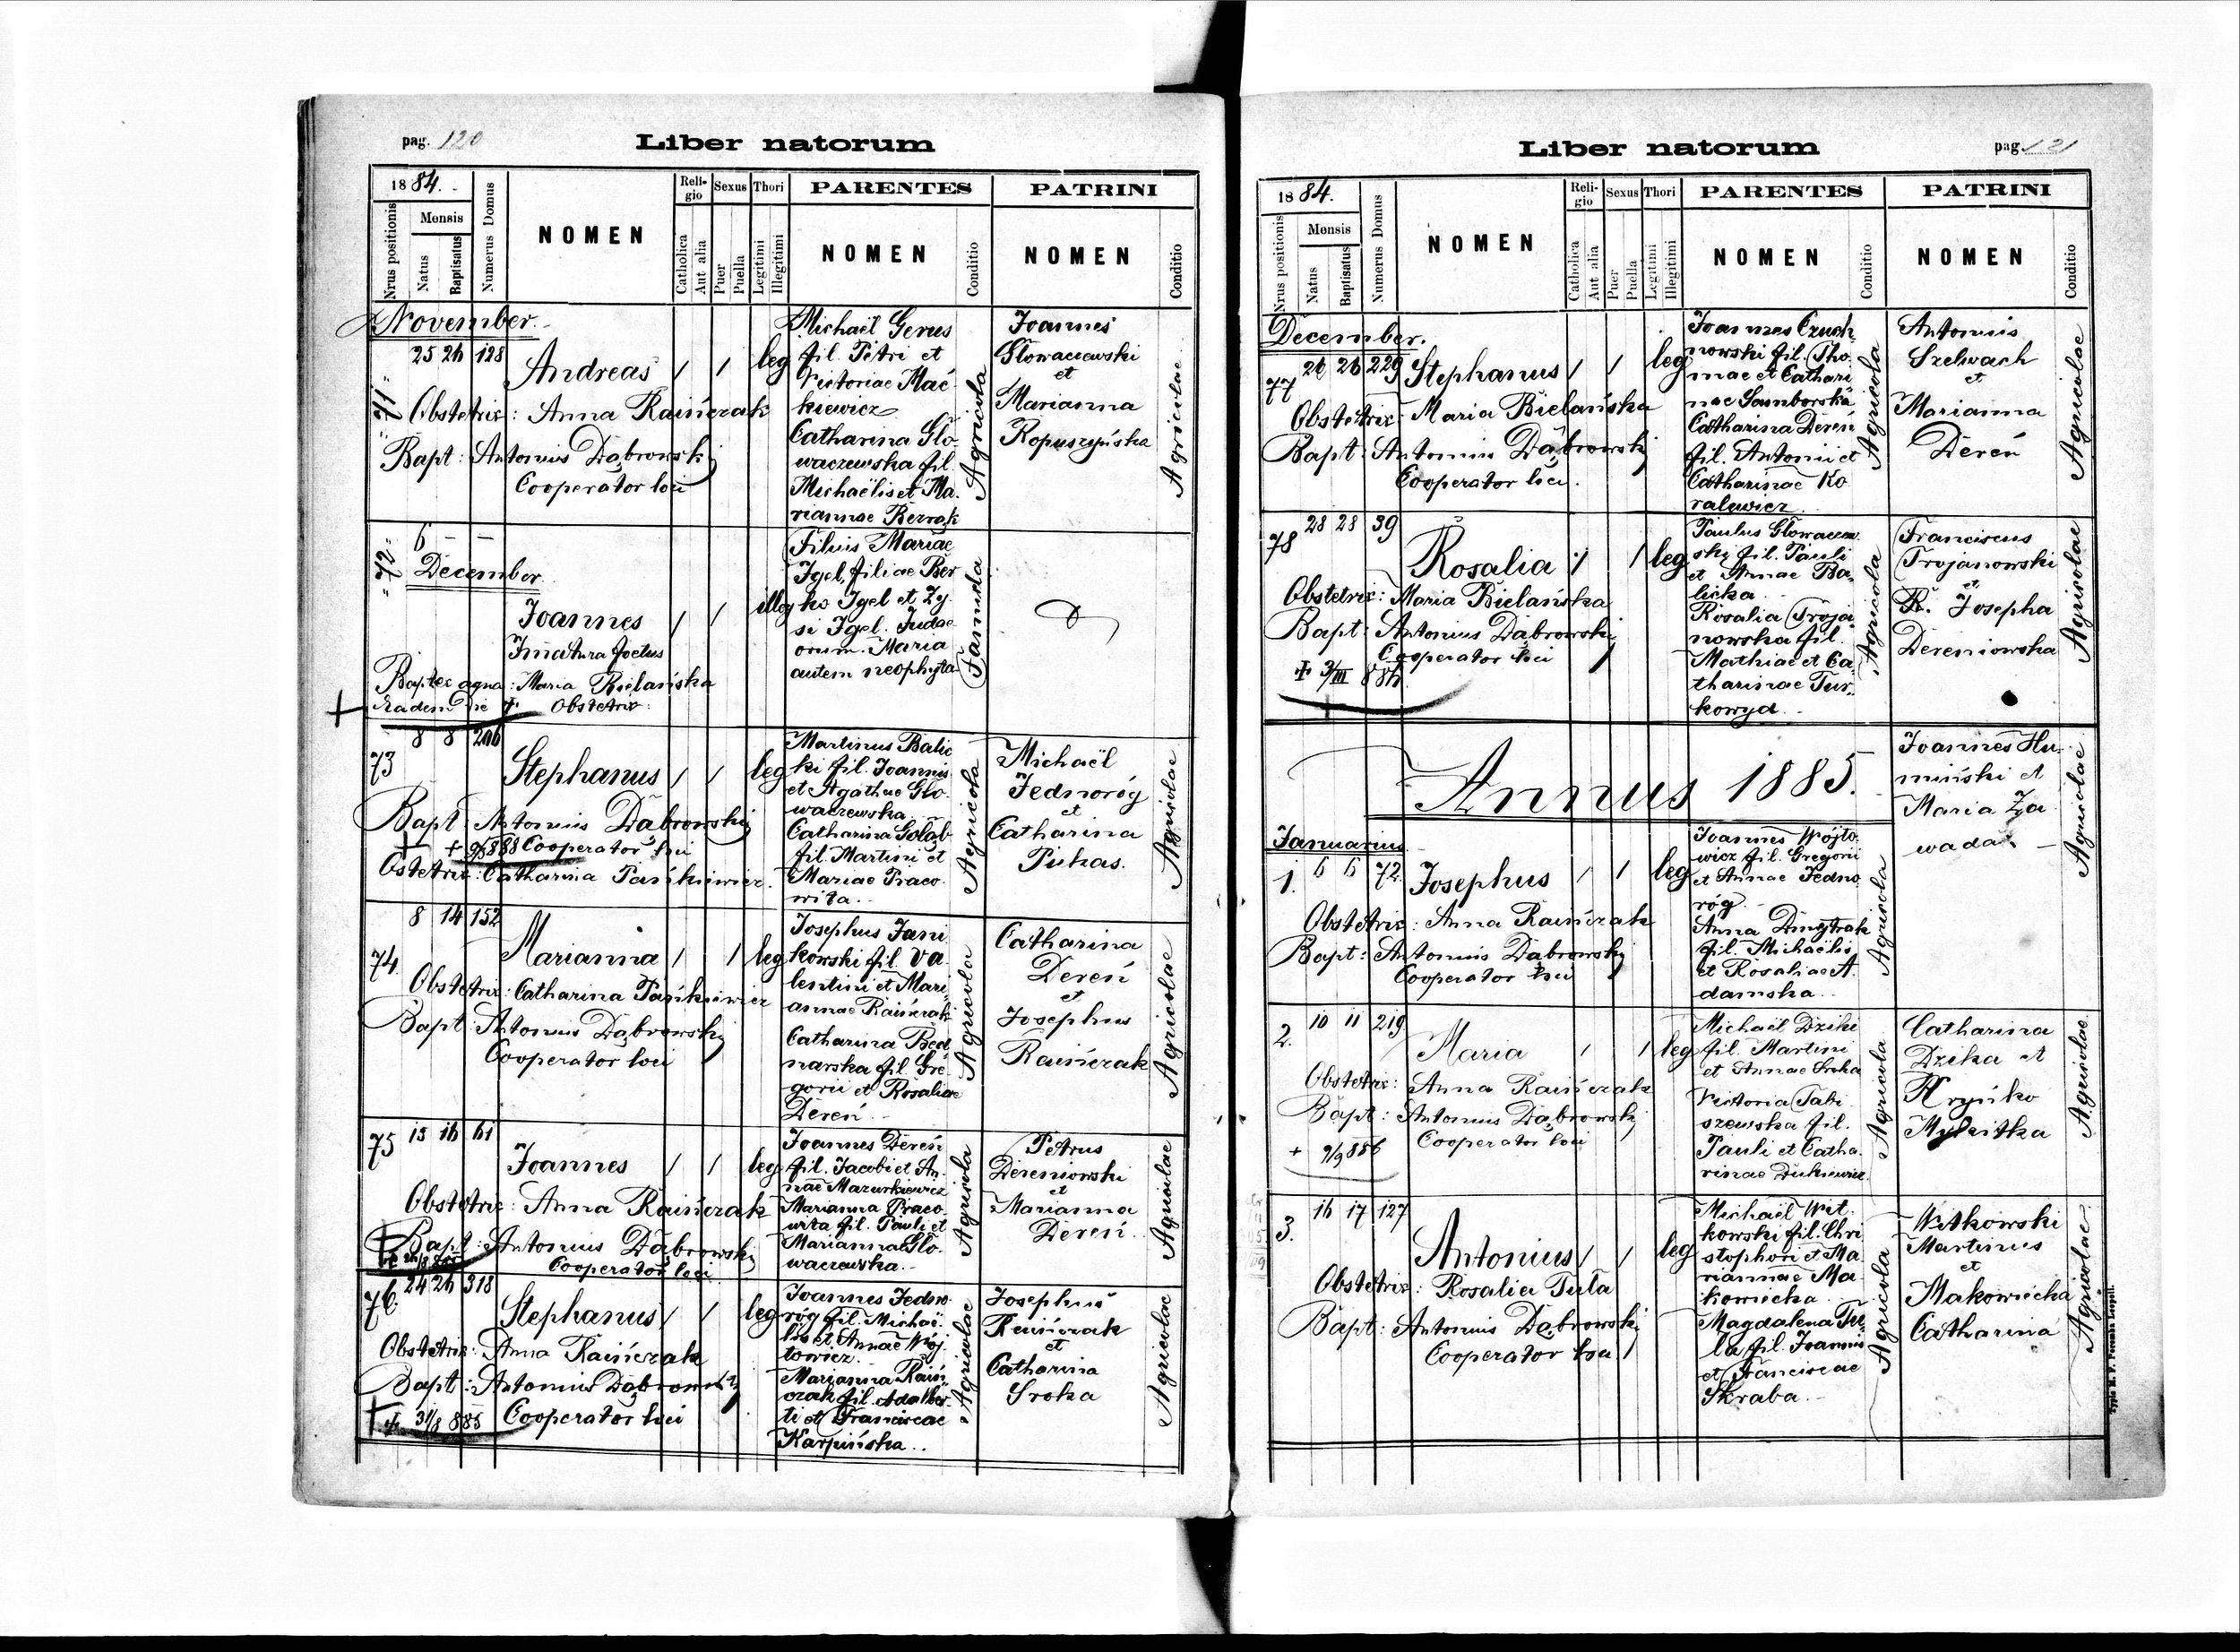 pag. 120
Liber natorum
1884.
Nrus positionis
Mensis
Natus
Baptisatus
Numerus Domus
NOMEN
Religio
Catholica
Aut alia
Sexus
Puer
Puella
Thori
Legitimi
Illegitimi
PARENTES
NOMEN
Conditio
PATRINI
NOMEN
Conditio
November.
71
25 26 128
Andreas / / leg
Obstetrix: Anna Rainczak
Bapt: Antonius Dąbrowski
Cooperator loci
Michaël Gerus
fil. Petri et
Victoriae Mać
kiewicz
Catharina Gło
waczewska fil.
Michaëlis et Ma
riannae Berrak
Agricola
Joannes
Głowaczewski
et
Marianna
Kopuszyńska
Agricolae
72
6 - -
December
Joannes / / illeg
Imatura foetus
Bapt ex aqua: Maria Bielańska
Eadem die + Obstetrix
Filius Mariae
Igel, filiae Ber
ko Igel et Zy
si Igel. Judae
orum. Maria
autem neophyta
Famula
73
8 8 206
Stephanus / / leg
Bapt Antonius Dąbrowski
Cooperator loci
Obstetrix: Catharina Paśkiewicz
Martinus Balic
ki fil. Joannis
et Agathae Gło
waczewska
Catharina Gołąb
fil. Martini et
Mariae Praco
wita
Agricola
Michaël
Jednoróg
et
Catharina
Pukas.
Agricolae
74
8 14 152
Marianna / / leg
Obstetrix: Catharina Paśkiewicz
Bapt: Antonius Dąbrowski
Cooperator loci
Josephus Jani
kowski fil. Va
lentini et Mari
annae Rainczak
Catharina Bed
narska fil. Gre
gorii et Rosaliae
Dereń
Agricola
Catharina
Dereń
et
Josephus
Rainczak
Agricolae
75
15 16 61
Joannes / / leg
Obstetrix: Anna Rainczak
Bapt: Antonius Dąbrowski
Cooperator loci
Joannes Dereń
fil. Jacobi et An
nae Mazurkiewicz
Marianna Praco
wita fil. Pauli et
Marianna Gło
waczewska.
Agricola
Petrus
Dereniowski
et
Marianna
Dereń.
Agricolae
76
24 26 318
Stephanus / / leg
Obstetrix: Anna Rainczak
Bapt: Antonius Dąbrowski
+ 31/8 885 Cooperator loci
Joannes Jedno
róg fil. Michaë
lis et Annae Wój
towicz.
Marianna Rain
czak fil. Adalber
ti et Franciscae
Karpińska..
Agricolae
Josephus
Rainczak
et
Catharina
Sroka
Agricolae
Liber natorum
pag. 121
1884.
Nrus positionis
Mensis
Natus
Baptisatus
Numerus Domus
NOMEN
Religio
Catholica
Aut alia
Sexus
Puer
Puella
Thori
Legitimi
Illegitimi
PARENTES
NOMEN
Conditio
PATRINI
NOMEN
Conditio
December.
77
26 26 229
Stephanus / / leg
Obstetrix: Maria Bielańska
Bapt: Antonius Dąbrowski
Cooperator loci.
Joannes Czuch
nowski fil. Tho
mae et Cathari
nae Samborska
Catharina Dereń
fil. Antonii et
Catharinae Ko
ralewicz
Agricola
Antonius
Szelwach
et
Marianna
Dereń
Agricolae
78
28 28 39
Rosalia / / leg
Obstetrix: Maria Bielańska
Bapt: Antonius Dąbrowski
Cooperator loci
Paulus Głowaczew
ski fil. Pauli
et Annae Ba
licka
Rosalia Troja
nowska fil.
Mathiae et Ca
tharinae Tur
kowyd
Agricola
Franciscus
Trojanowski
et
R. Josepha
Dereniowska
Agricolae
Annus 1885.
Januarius
1.
6 6 72
Josephus / / leg
Obstetrix: Anna Rainczak
Bapt: Antonius Dąbrowski
Cooperator loci
Joannes Wójto
wicz fil. Gregorii
et Annae Jedno
róg
Anna Dmytrak
fil. Michaëlis
et Rosaliae A
damska
Agricola
Joannes Hu
miński et
Maria Za
wada
Agricolae
2.
10 11 219
Maria / / leg
Obstetrix: Anna Rainczak
Bapt: Antonius Dąbrowski
Cooperator loci
+ 9/9 886
Michaël Dziki
fil. Martini
et Annae Sroka
Victoria Tabi
szewska fil.
Pauli et Catha
rinae Dukiewicz
Agricola
Catharina
Dzika et
Hryńko
Mykitka
Agricolae
3.
16 17 127
Antonius / / leg
Obstetrix: Rosalia Tuła
Bapt: Antonius Dąbrowski
Cooperator loci
Michaël Wit
kowski fil. Chri
stophori et Ma
riannae Ma
kowiecka
Magdalena Tu
ła fil. Joannis
et Franciscae
Skraba.
Agricola
Witkowski
Martinus
et
Makowiecka
Catharina
Agricolae